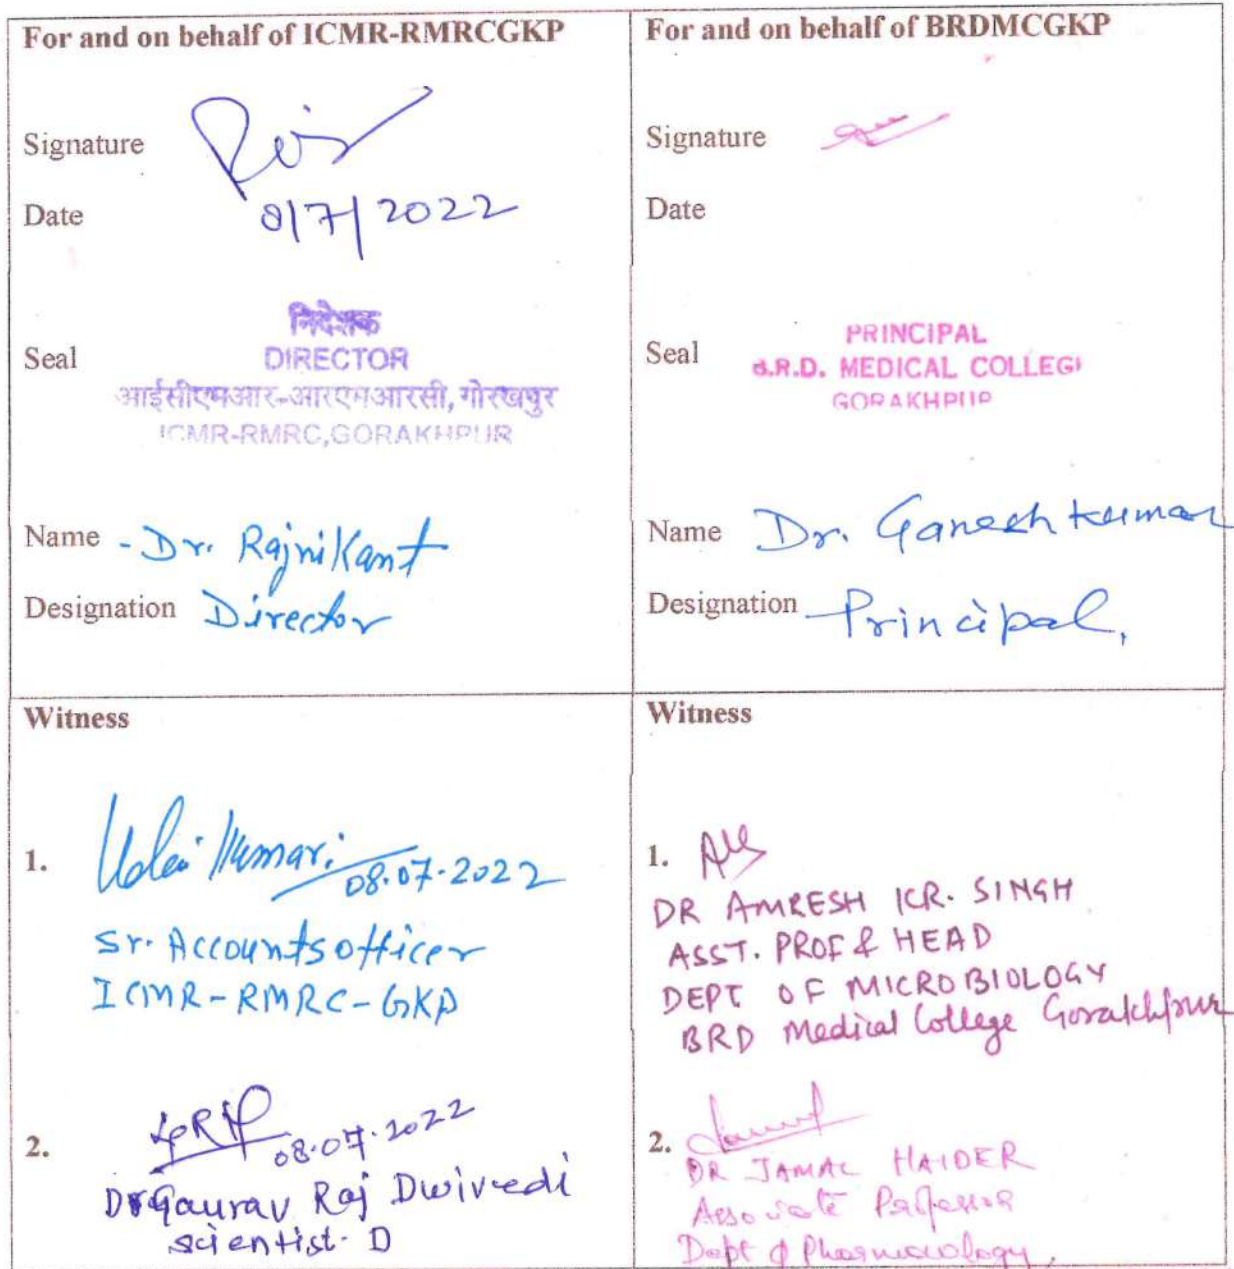 For and on behalf of ICMR-RMRCGKP
Signature
Date 8/7/2022
Seal
निदेशक
DIRECTOR
आईसीएमआर-आरएमआरसी, गोरखपुर
ICMR-RMRC,GORAKHPUR
Name - Dr. Rajnikant
Designation Director
For and on behalf of BRDMCGKP
Signature
Date
Seal
PRINCIPAL
B.R.D. MEDICAL COLLEGE
GORAKHPUR
Name Dr. Ganesh Kumar
Designation Principal,
Witness
1. Kumari 08.07.2022
Sr. Accounts officer
ICMR-RMRC-GKP
2. 08.07.2022
Dr Gaurav Raj Dwivedi
Scientist-D
Witness
1.
DR AMRESH KR. SINGH
ASST. PROF & HEAD
DEPT OF MICROBIOLOGY
BRD Medical College Gorakhpur
2.
DR JAMAL HAIDER
Associate Professor
Dept of Pharmacology,